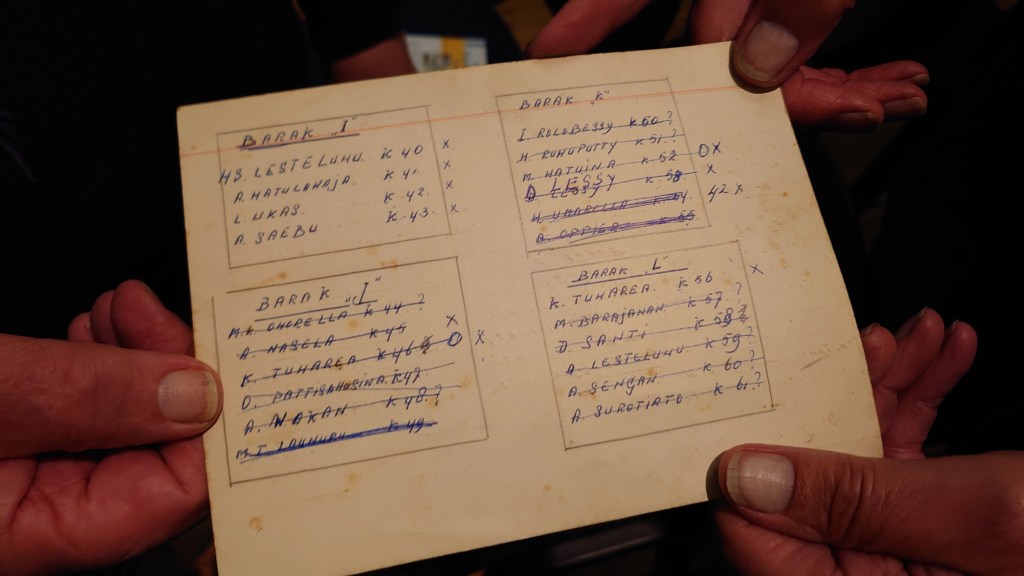 BARAK „I"
HS. LESTELUHU. K 40 X
A. HATULAHAJA. K 41 X
L. UKAS. K 42. X
A. SAEBU K 43. X
BARAK „K"
I ROLOBESSY K 50 ?
H. RUHUPUTTY K 51 ?
M. HATUINA K 52 OX
D LESSY K 53 X
K 54 42 X
A. OPPIER K 55
BARAK „I"
M.L. OHORELLA K 44 ?
A. NASELA K 45 X
K. TUHAREA K 46 O X
D. PATTISAHUSINA. K 47
A. WAKAN K 48 ?
M.T. K 49
BARAK „L"
K. TUHAREA. K 56 X
M. BARAJANAN. K 57 ?
D. SANTI K 58
A. LESTELUHU K 59 ?
A. SENGAN K 60 ?
A. SUROTIATO K 61 ?